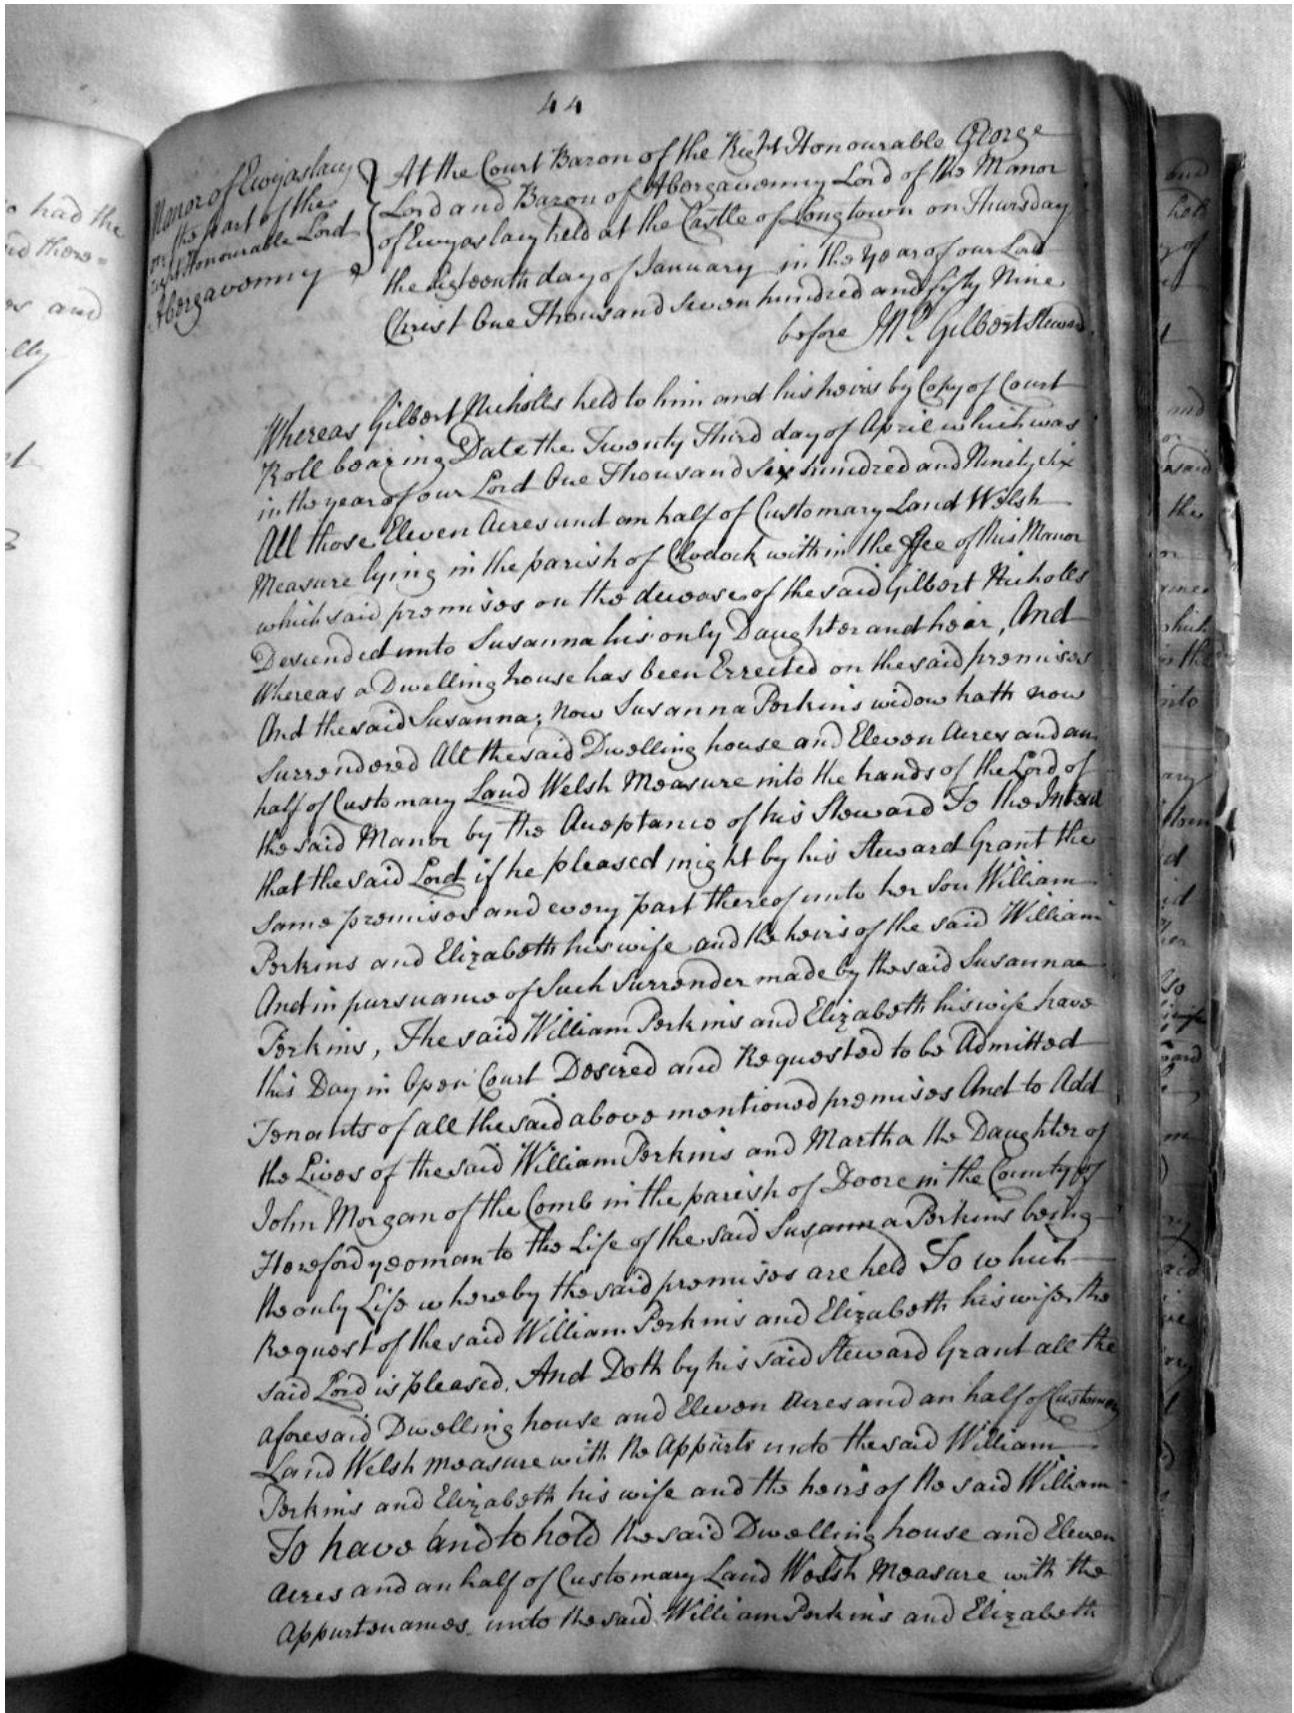 44
Manor of Ewyaslacy
on the part of the
right Honourable Lord
Abergavenny
At the Court Baron of the Right Honourable George
Lord and Baron of Abergavenny Lord of the Manor
of Ewyaslacy held at the Castle of Longtown on Thursday
the Eighteenth day of January in the year of our Lord
Christ One Thousand Seven hundred and fifty Nine
before Mr. Gilbert Steward.
Whereas Gilbert Nicholls held to him and his heirs by Copy of Court
Roll bearing Date the Twenty Third day of April which was
in the year of our Lord One Thousand Six hundred and Ninety six
All those Eleven Acres and an half of Customary Land Welsh
Measure lying in the parish of Clodock within the Fee of this Manor
which said premises on the decease of the said Gilbert Nicholls
Descended unto Susanna his only Daughter and heir, And
Whereas a Dwelling house has been Errected on the said premises
And the said Susanna, now Susanna Perkins widow hath now
Surrendered All the said Dwelling house and Eleven Acres and an
half of Customary Land Welsh Measure into the hands of the Lord of
the said Manor by the Acceptance of his Steward To the Intent
that the said Lord if he pleased might by his Steward Grant the
same premises and every part thereof unto her Son William
Perkins and Elizabeth his wife and the heirs of the said William
And in pursuance of Such Surrender made by the said Susanna
Perkins, The said William Perkins and Elizabeth his wife have
this Day in Open Court Desired and Requested to be Admitted
Tenants of all the said above mentioned premises And to Add
the Lives of the said William Perkins and Martha the Daughter of
John Morgan of the Comb in the parish of Doore in the County of
Hereford yeoman to the Life of the said Susanna Perkins being
the only Life whereby the said premises are held To which
Request of the said William Perkins and Elizabeth his wife the
said Lord is pleased. And Doth by his said Steward Grant all the
aforesaid Dwelling house and Eleven Acres and an half of Customary
Land Welsh measure with the Appurts unto the said William
Perkins and Elizabeth his wife and the heirs of the said William
To have and to hold the said Dwelling house and Eleven
Acres and an half of Customary Land Welsh Measure with the
Appurtenances unto the said William Perkins and Elizabeth